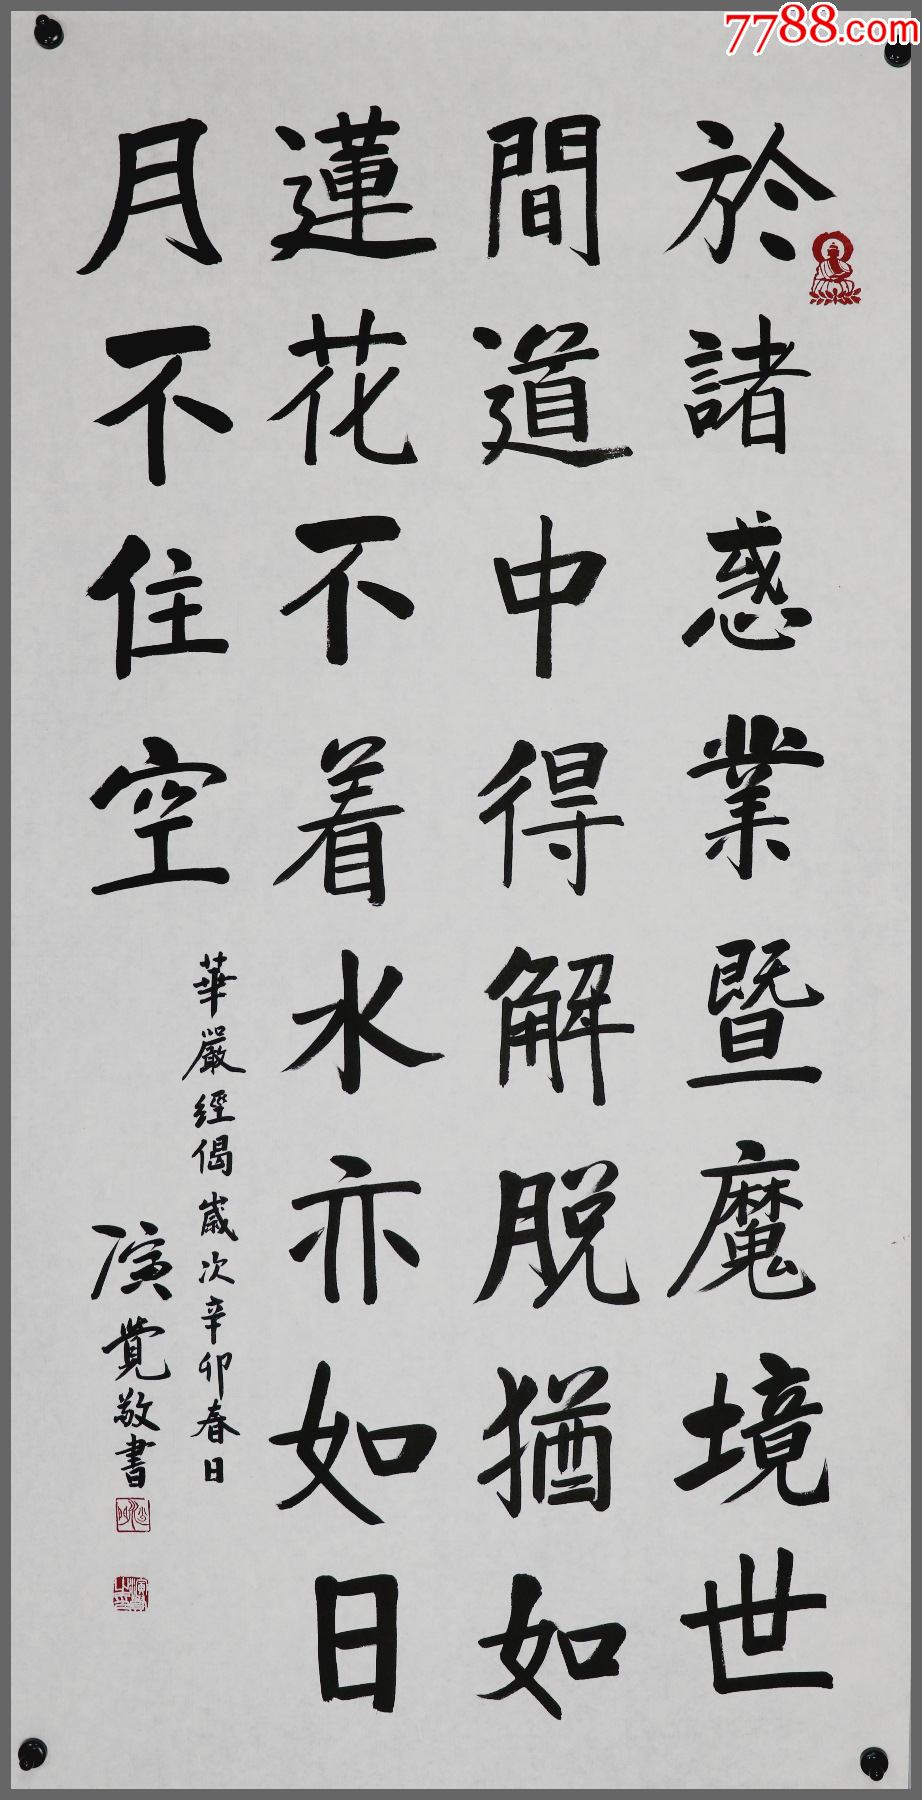 7788.com
於諸惑業暨魔境世
間道中得解脱猶如
蓮花不着水亦如日
月不住空
華嚴經偈歲次辛卯春日
演覺敬書